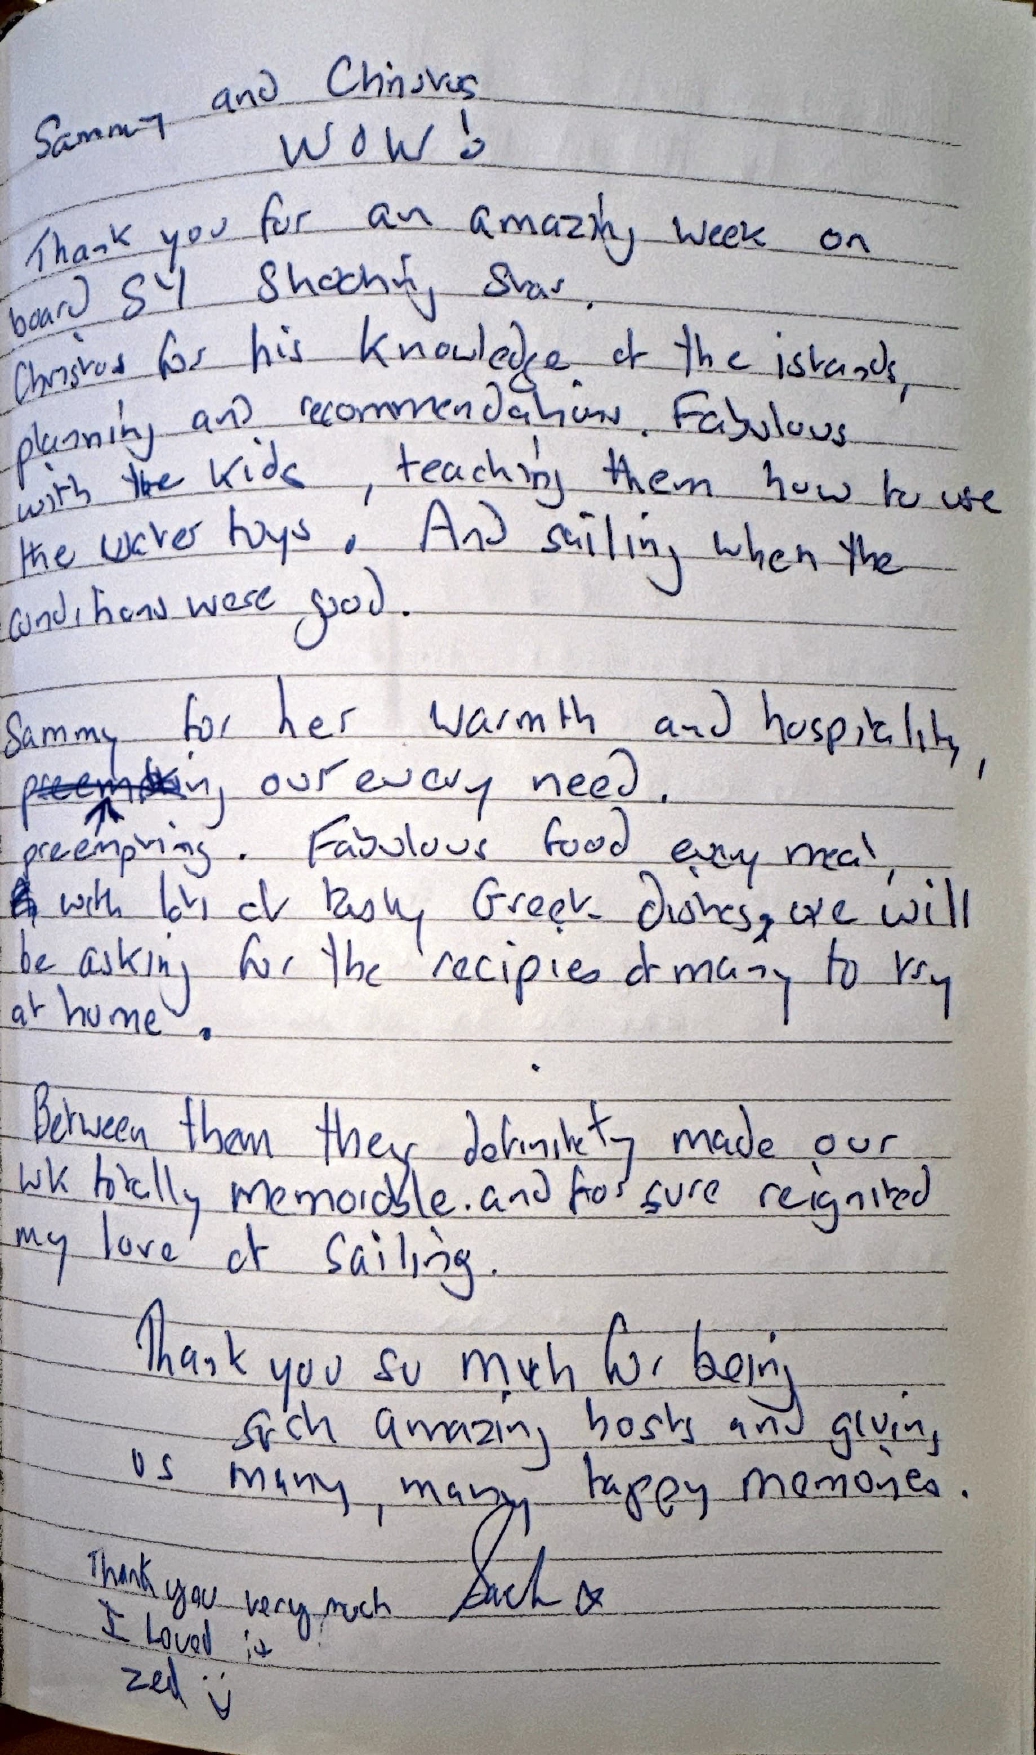 Sammy and Christos
WOW!
Thank you for an amazing week on
board SY Shooting Star.
Christos for his knowledge of the islands,
planning and recommendations. Fabulous
with the kids, teaching them how to use
the water toys. And sailing when the
conditions were good.
Sammy for her warmth and hospitality,
our every need.
preempting. Fabulous food every meal,
with lots of tasty Greek dishes, we will
be asking for the recipies of many to try
at home.
Between them they definitely made our
wk totally memorable. and for sure reignited
my love of sailing.
Thank you so much for being
such amazing hosts and giving
us many, many happy memories.
Thank you very much
I Loved it
Zed :)